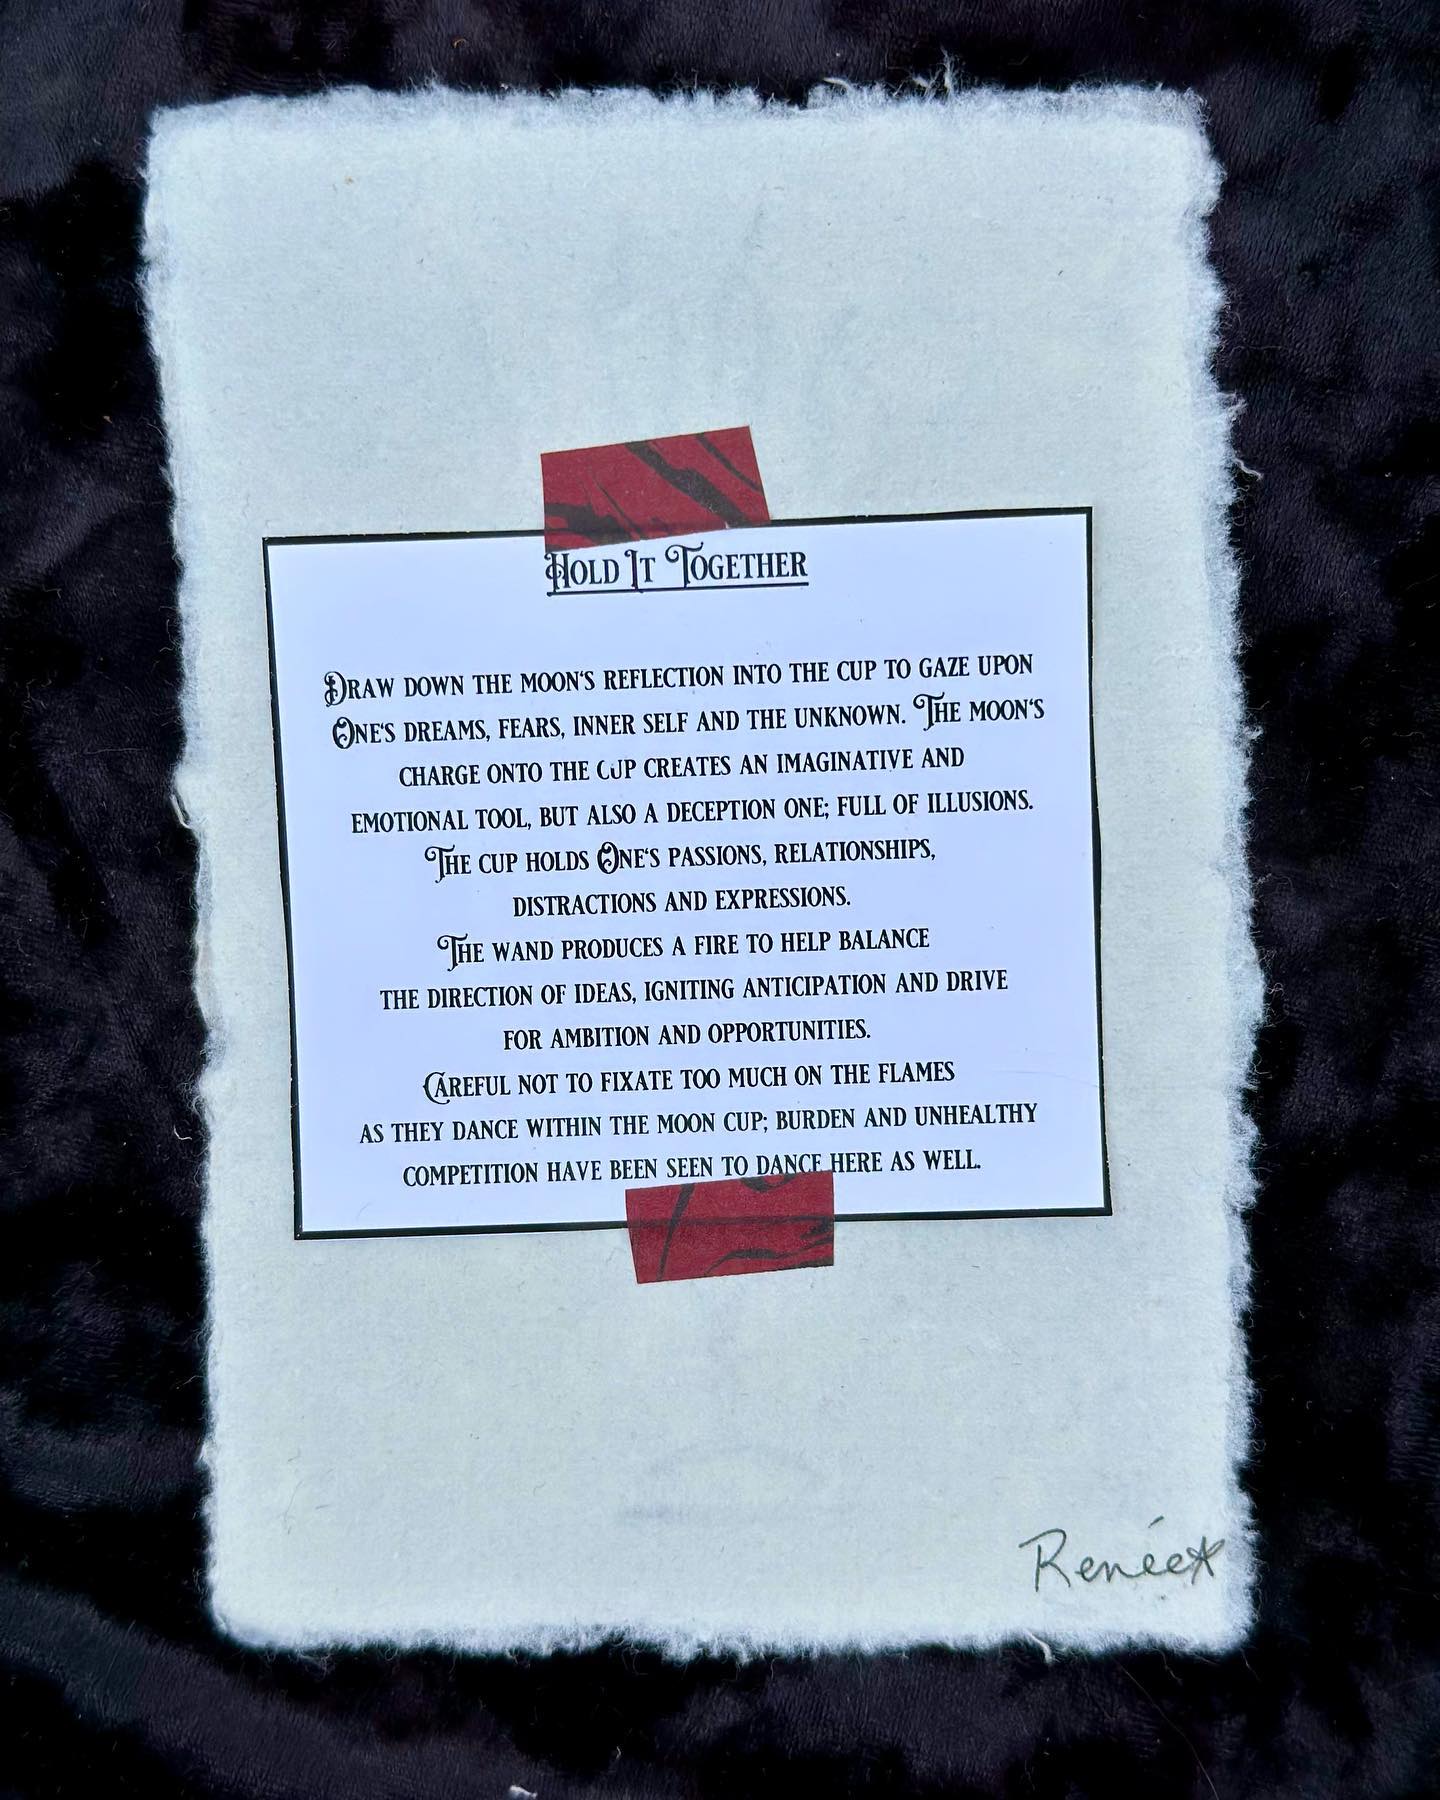 Hold It Together
Draw down the moon's reflection into the cup to gaze upon
One's dreams, fears, inner self and the unknown. The moon's
charge onto the cup creates an imaginative and
emotional tool, but also a deception one; full of illusions.
The cup holds One's passions, relationships,
distractions and expressions.
The wand produces a fire to help balance
the direction of ideas, igniting anticipation and drive
for ambition and opportunities.
Careful not to fixate too much on the flames
as they dance within the moon cup; burden and unhealthy
competition have been seen to dance here as well.
Renée